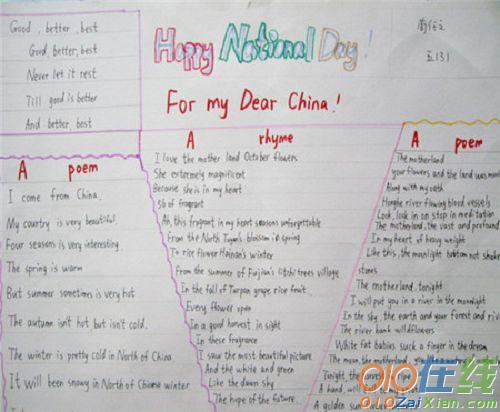 Good, better, best
Good, better, best
Never let it rest
Till good is better
And better, best
Happy National Day!
For my Dear China!
A poem
I come from China.
My country is very beautiful.
Four seasons is very interesting.
The spring is warm
But summer sometimes is very hot
The autumn isn't hot but isn't cold.
The winter is pretty cold in North of China
It will been snowy in North of Chinese winter
A rhyme
I love the mother land October flowers
She extremely magnificent
Because she is in my heart
So of fragrant
Ah, this fragrant in my heart seasons unforgettable
From the North blossom in spring
To rice flower Hainan's winter
From the summer of Fujian's litchi trees village
In the fall of Turpan grape rice fruit
Every flower open
In a good harvest in sight
In these fragrance
I saw the most beautiful picture
And the white and green
Like the dawn sky
The hope of the future.
A poem
The motherland
your flowers and the land was
Along with my oath
Honghe river flowing blood vessels
Look, look in on stop in meditation
The motherland, the vast and profound
In my heart of heavy weight
Like this, the moonlight bottom not shake
stones
The motherland, tonight
I will put you in a river in the moonlight
In the sky, the earth and your forest and
The river bank wildflowers
White fat babies suck a finger in the dream
The moon, the motherland,
Tonight, the
A hand, will
A golden
010在线
010ZaiXian.com